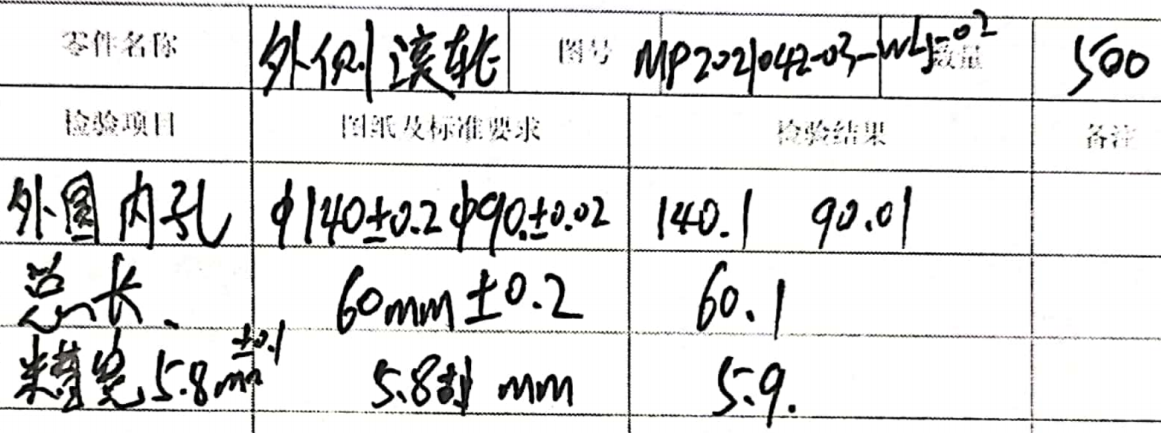 零件名称 外侧滚轮 图号 MP2021042-03-WLJ-02 数量 500
检验项目 图纸及标准要求 检验结果 备注
外圆 内孔 ф140±0.2 ф90±0.02 140.1 90.01
总长 60mm±0.2 60.1
宽5.8mm±0.1 5.8 mm 5.9.